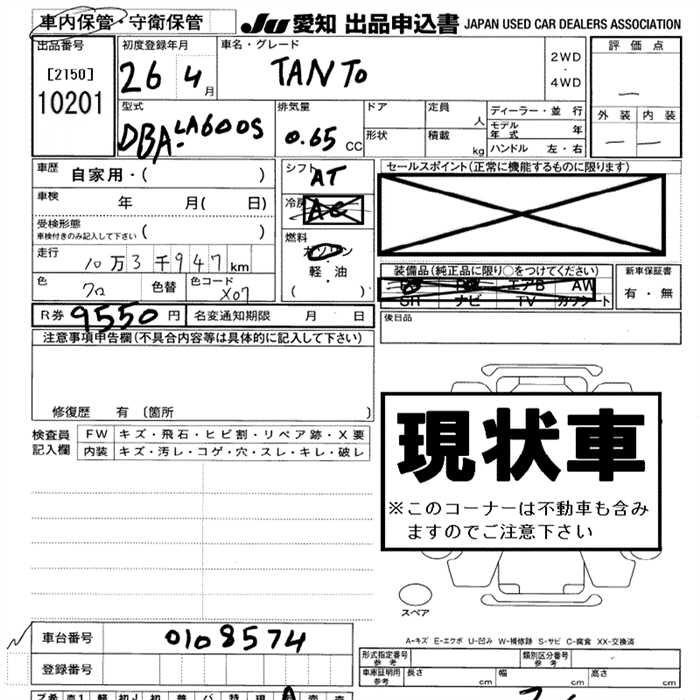 車内保管・守衛保管
JU 愛知 出品申込書 JAPAN USED CAR DEALERS ASSOCIATION
出品番号 初度登録年月 車名・グレード 2WD・4WD 評価点
[2150]
10201 26 4月 TANTO —
型式 排気量 ドア 定員 人 ディーラー・並行 外装 内装
DBA-LA600S 0.65 CC 形状 積載 kg モデル年式 年 — —
ハンドル 左・右
車歴 自家用・( ) シフト AT セールスポイント(正常に機能するものに限ります)
車検 年 月( 日) 冷房 AC
受検形態 ( )
車検付きのみ記入して下さい
燃料 ガソリン・軽・油 ( )
走行 10万3千947km 装備品(純正品に限り○をつけてください) 新車保証書
色 クロ 色替 色コード X07 エアB AW 有・無
SR ナビ TV カワシート
R券 9550円 名変通知期限 月 日 後日品
注意事項申告欄(不具合内容等は具体的に記入して下さい)
修復歴 有 (箇所 )
現状車
※このコーナーは不動車も含み
ますのでご注意下さい
検査員記入欄 FW キズ・飛石・ヒビ割・リペア跡・X要
内装 キズ・汚レ・コゲ・穴・スレ・キレ・破レ
スペア
A-キズ E-エクボ U-凹み W-補修跡 S-サビ C-腐食 XX-交換済
車台番号 0108574
登録番号
形式指定番号 参考 類別区分番号 参考
車庫証明用 参考 長さ cm 幅 cm 高さ cm